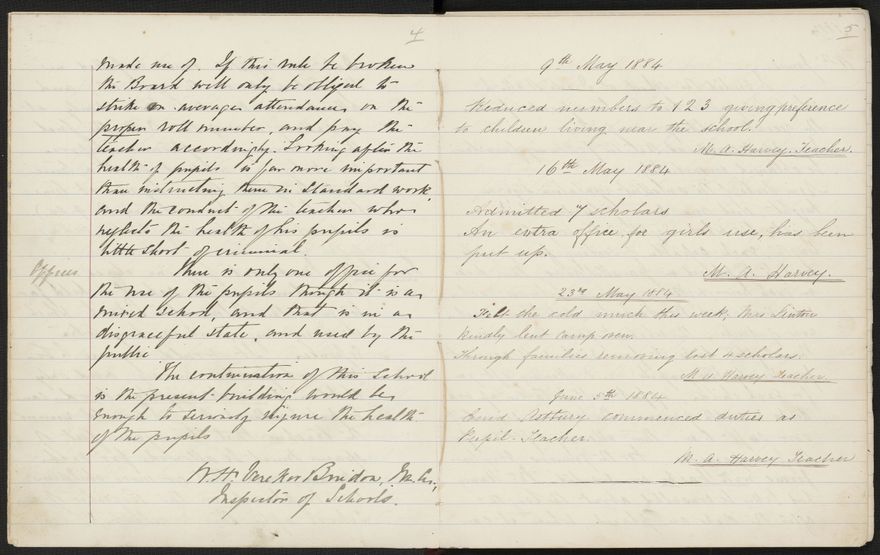 4
made use of. If this rule be broken
the Board will only be obliged to
strike an average attendance on the
proper roll number, and pay the
teacher accordingly. Looking after the
health of pupils is far more important
than instructing them in Standard work,
and the conduct of the teacher who
neglects the health of his pupils is
little short of criminal.
Offices
There is only one office for
the use of the pupils though it is a
mixed school, and that is in a
disgraceful state, and used by the
public
The continuation of this school
in the present building would be
enough to seriously injure the health
of the pupils
Inspector of Schools.
5
9th May 1884
Reduced numbers to 123 giving preference
to children living near the school.
M. A. Harvey. Teacher.
16th May 1884
Admitted 7 scholars
An extra office for girls use, has been
put up.
M. A. Harvey.
23rd May 1884
Felt the cold much this week, Mrs
kindly lent camp oven.
Through families removing lost 4 scholars.
M. A. Harvey Teacher.
June 5th 1884
Enid commenced duties as
Pupil-Teacher.
M. A. Harvey Teacher